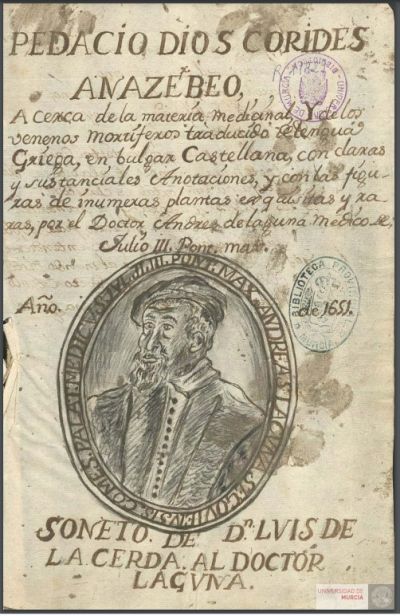 PEDACIO DIOSCORIDES
ANAZEBEO,
Acerca de la materia medicinal, Y de los
venenos mortiferos traducido de lengua
Griega, en bulgar Castellana, con claras
y sustanciales Anotaciones, y con las figu-
ras de inumeras plantas exquisitas y ra-
ras, por el Doctor Andres de laguna Medico de
Julio III. Pont. max.
Año. de 1651.
ANDREAS LACVNA SECOVIENSIS
MEDICVS IVL. III. PONT. MAX.
SONETO. DE Dn. LVIS DE
LA CERDA. AL DOCTOR
LAGVNA.
BIBLIOTECA PROVINCIAL
MURCIA
UNIVERSIDAD DE
MURCIA